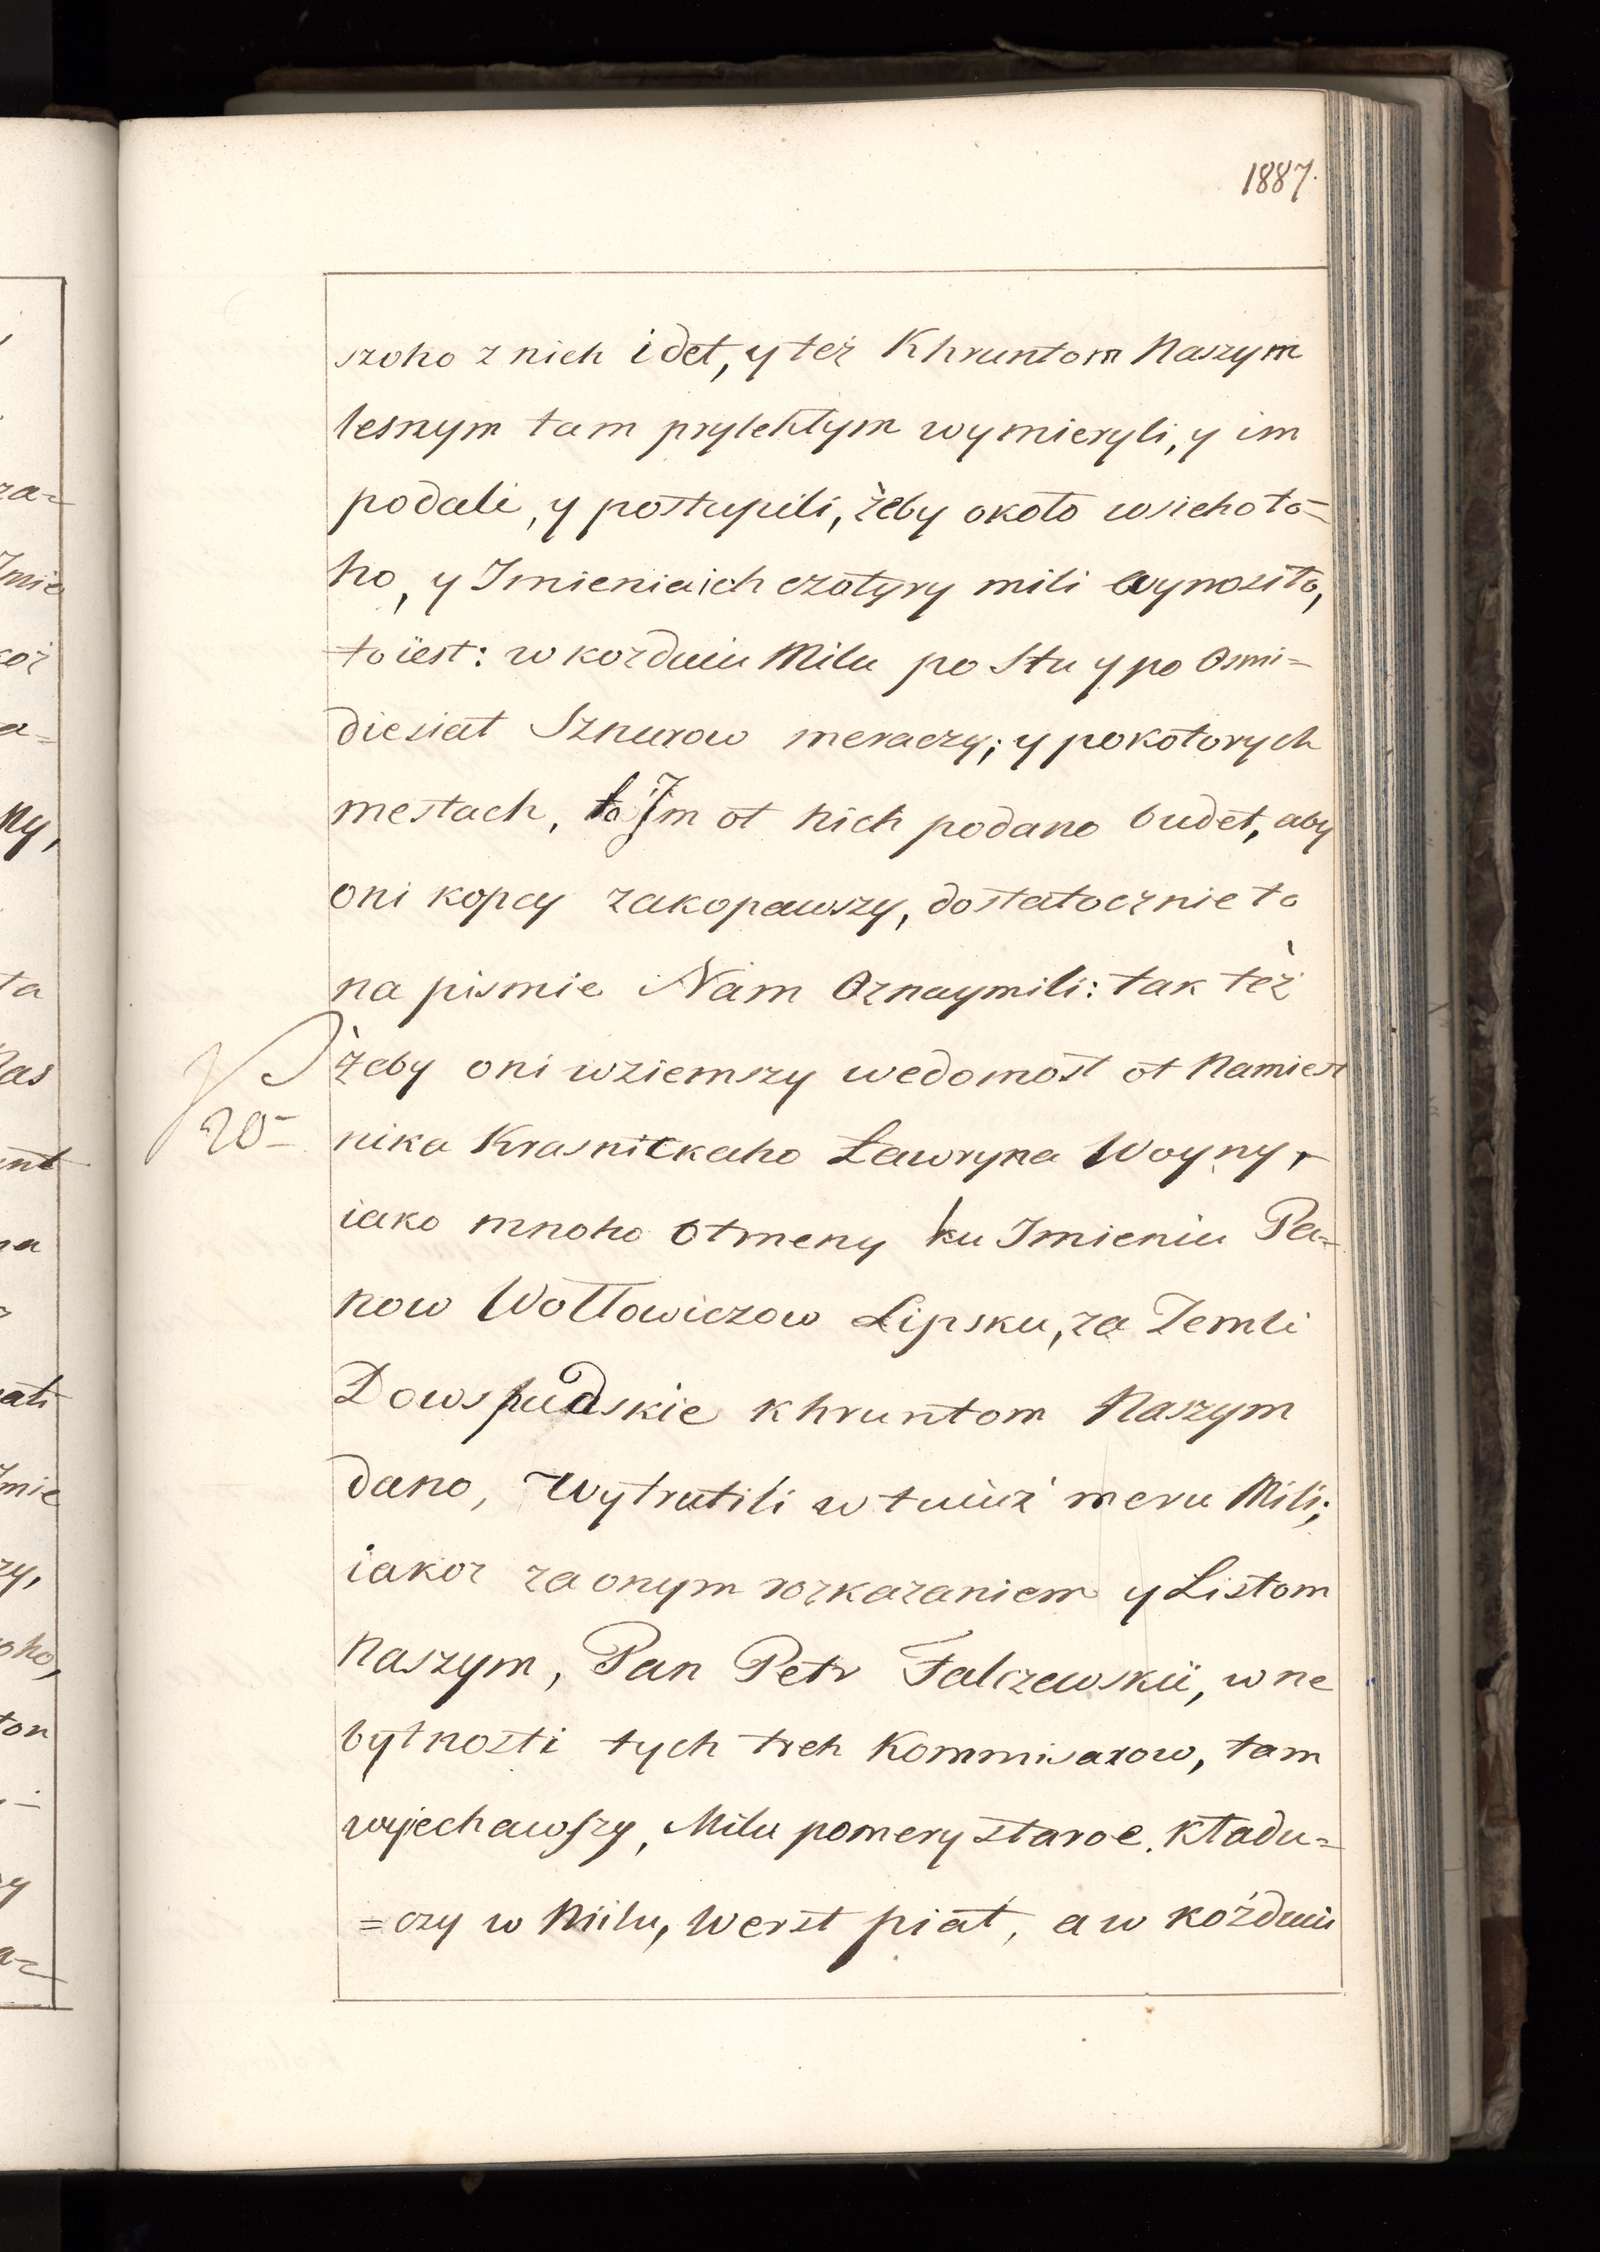 1887.
szoho z nich idet, y też Khruntom Naszym
lesnym tam prylehłym wymieryli, y im
podali, y postupili, żeby około wsieho to=
ho, y Imienia ich czotyry mili wynosiło,
to iest: w kożduiu Milu po Stu y po Osmi=
diesiat Sznurow meraczy; y po kotorych
mestach, to Im ot nich podano budet, aby
oni kopcy zakopawszy, dostatocznie to
na pismie Nam Oznaymili: tak też
żeby oni wziemszy wedomost ot Namiest
20=
nika Krasnickaho Ławryna Woyny,
iako mnoho otmeny ku Imieniu Pa=
now Wołłowiczow Lipsku, za Zemli
Dowspudskie khruntom Naszym
dano, Wytrutili w tuiuż meru Mili;
iakoz za onym rozkazaniem y Listom
Naszym, Pan Petr Falczewskii, w ne
bytnosti tych treh Kommisarow, tam
wyjechawszy, Milu pomery staroe, kładu=
=czy w Milu, Werst piat, a w kożduiu